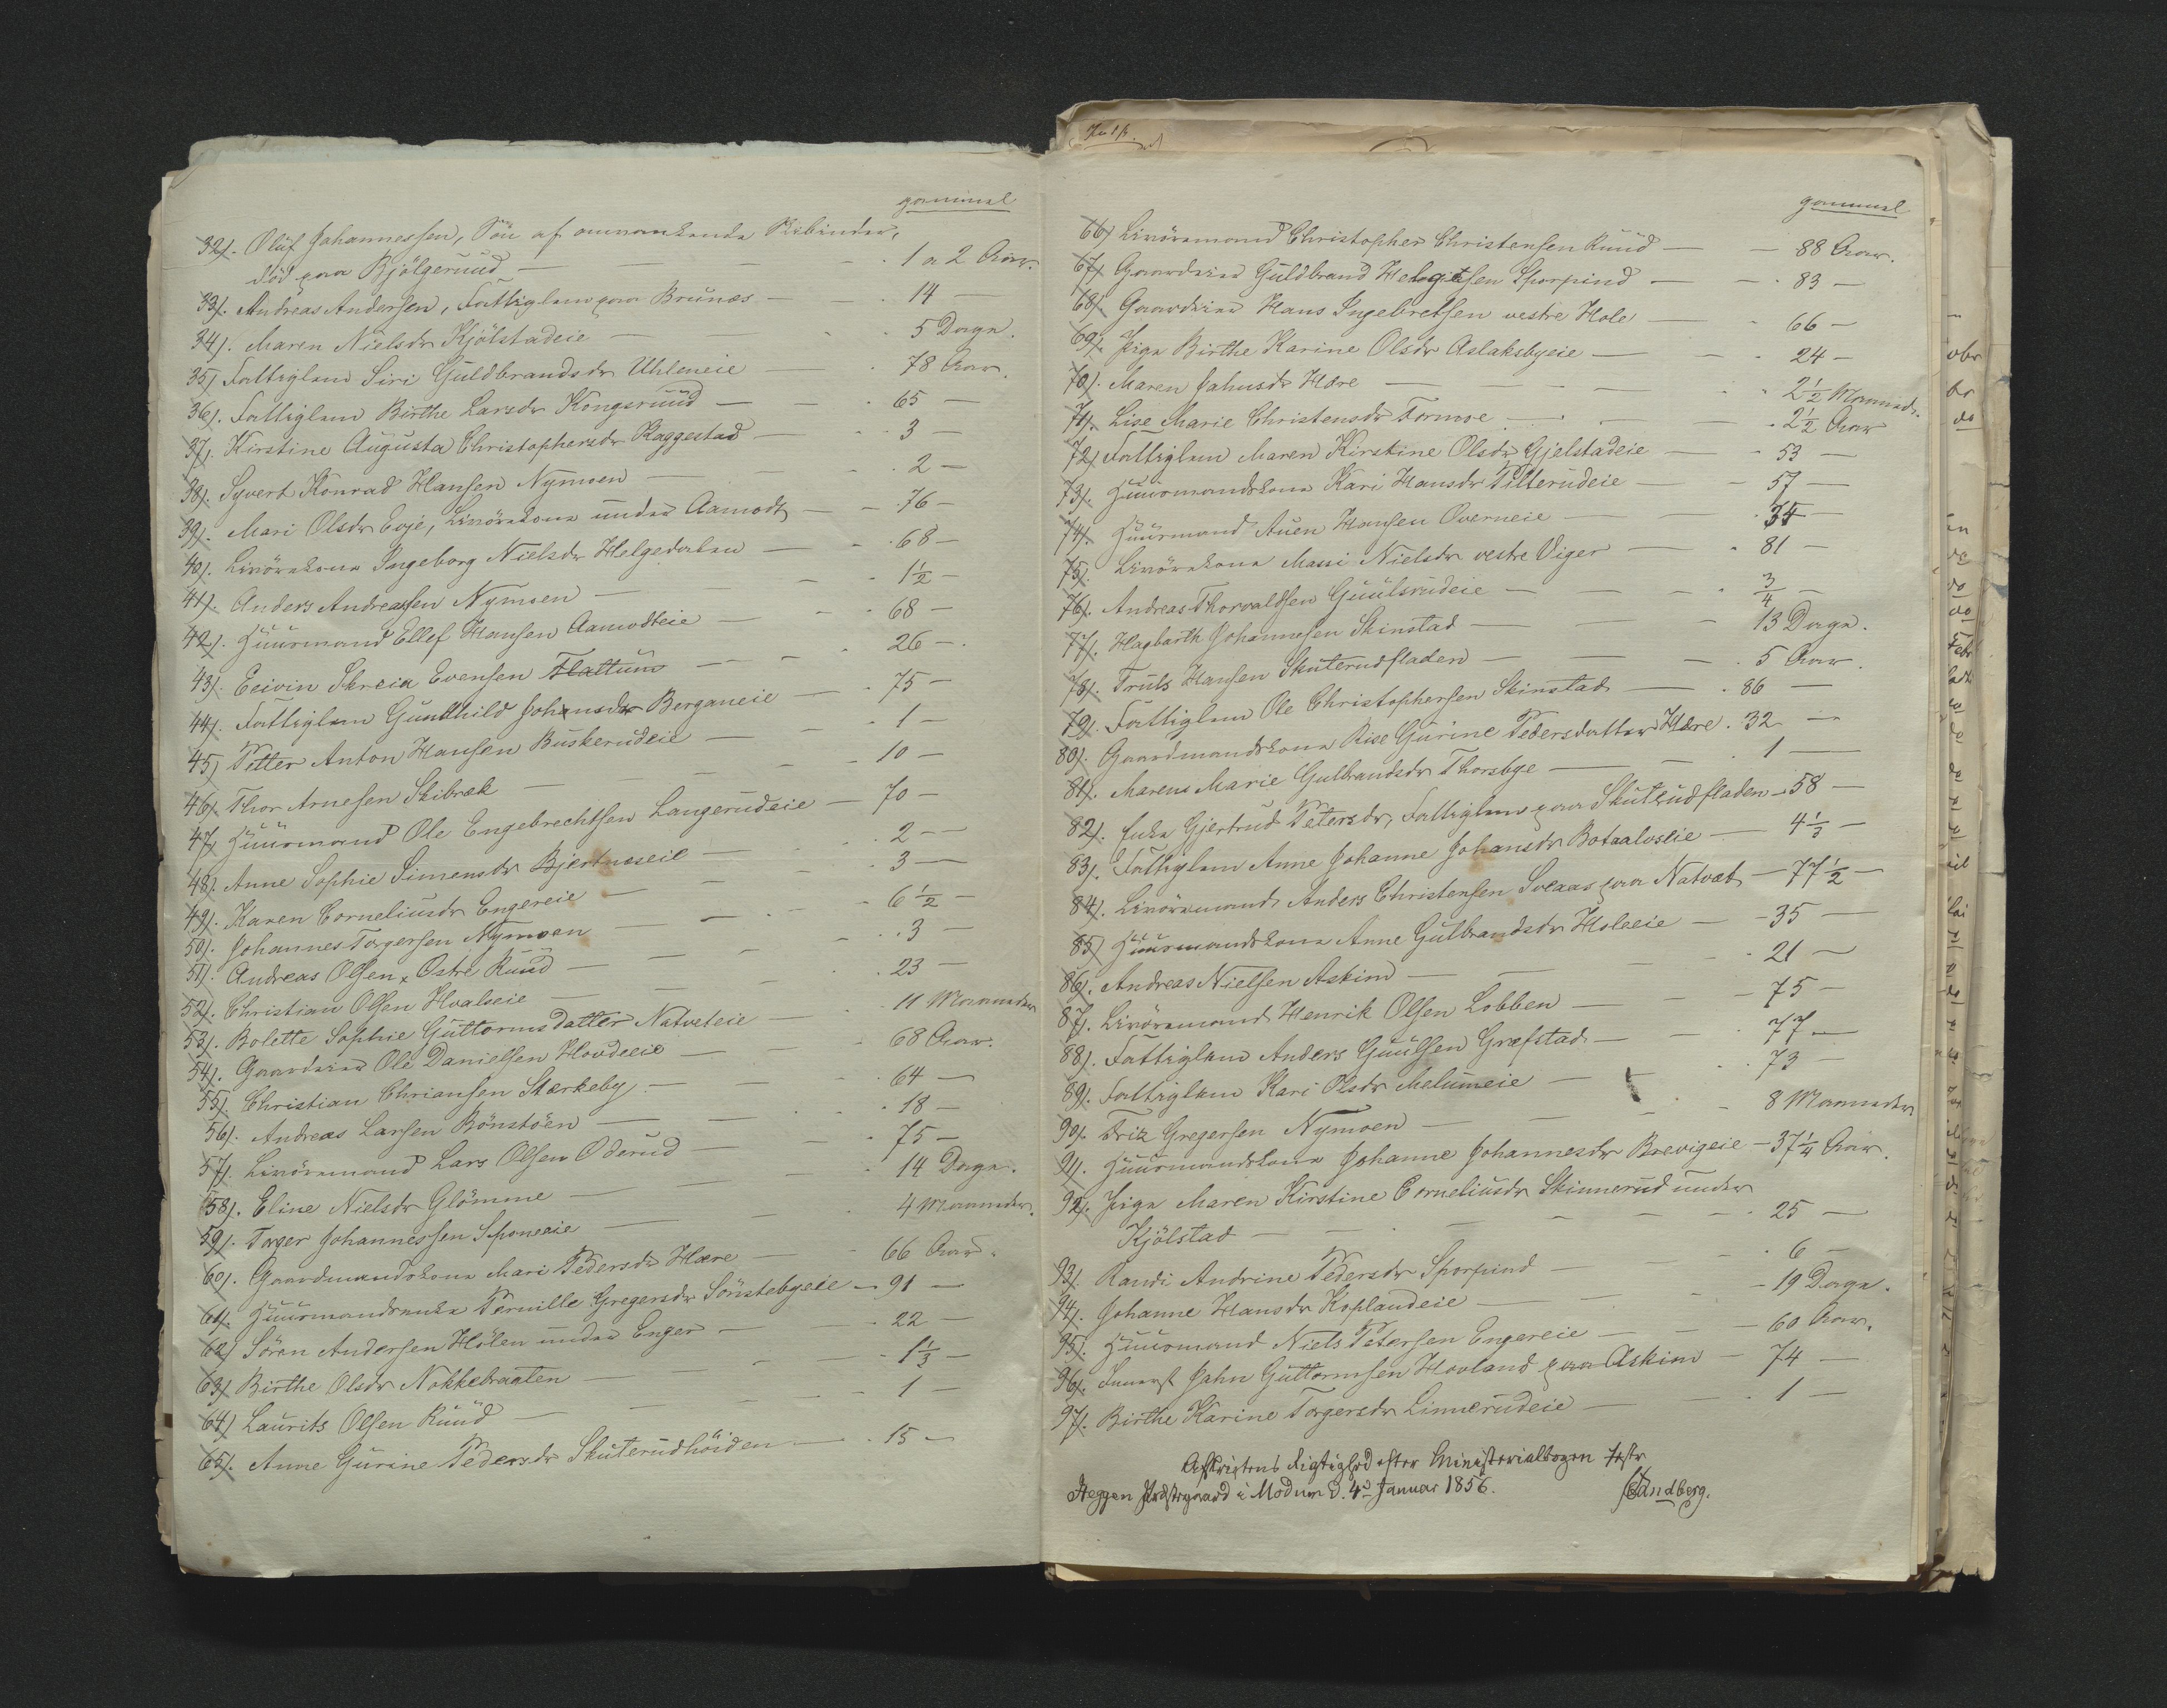 gammel
32). Oluf Johannessen, Søn af omvankende Bkbinder,
død paa Bjölgerud — 1 a 2 Aar.
33). Andreas Andersen, Fattiglem paa Brunæs — 14 —
34). Maren Nielsdr Kjölstadeie — 5 Dage.
35) Fattiglem Siri Guldbrandsdr Uhleneie — 78 Aar.
36). Fattiglem Birthe Larsdr Kongsruud — 65 —
37). Kirstine Augusta Christophersdr Raggestad — 3 —
38). Syvert Konrad Hansen Nymoen — 2 —
39). Mari Olsdr Evje, Livörekone under Aamodt — 76 —
40). Livörekone Ingeborg Nielsdr Helgedalen — 68 —
41). Anders Andreassen Nymoen — 1½ —
42). Huusmand Ellef Hansen Aamodteie — 68 —
43). Eeivin Skreia Evensen Flattum — 26 —
44). Fattiglem Gunhild Johansdr Berganeie — 75 —
45) Petter Anton Hansen Buskerudeie — 1 —
46). Thor Arnesen Skibræk — 10 —
47). Huusmand Ole Engebrechtsen Langerudeie — 70 —
48). Anne Sophie Simensdr Bjertnæseie — 2 —
49). Karen Corneliusdr Engereie — 3 —
50). Johannes Torgersen Nymoen — 6½ —
51). Andreas Olsen Østre Ruud — 3 —
52). Christian Olsen Hvalseie — 23 —
53). Bolette Sophie Guttormsdatter Natveteie — 11 Maaneder
54). Gaardeier Ole Danielsen Hovdeeie — 68 Aar.
55). Christian Chriansen Stærkeby — 64 —
56). Andreas Larsen Bönstöen — 18 —
57). Livöremand Lars Olsen Oderud — 75 —
58). Eline Nielsdr Glömme — 14 Dage.
59). Torger Johannessen Sponeeie — 4 Maaneder.
60). Gaardmandskone Mari Pedersdr Hære — 66 Aar.
61). Huusmandsenke Pernille Gregersdr Sönstebyeie — 91 —
62) Sören Andersen Hölen under Enger — 22 —
63) Birthe Olsdr Nokkebraaten — 1⅓ —
64) Laurits Olsen Ruud — 1 —
65). Anne Gurine Pedersdr Skuterudhöiden — 15 —
gammel
66) Livöremand Christopher Christensen Ruud — 88 Aar.
67). Gaardeier Guldbrand Helgesen Sporpind — 83 —
68). Gaardeier Hans Ingebretsen vestre Hole — 66 —
69). Pige Birthe Karine Olsdr Aslaksbyeie — 24 —
70). Maren Jahnsdr Hære — 2½ Maaned.
71). Lise Marie Christensdr Formoe — 2½ Aar
72) Fattiglem Maren Kirstine Olsdr Gjelstadeie — 53 —
73). Huusmandskone Kari Hansdr Tillerudeie — 57 —
74). Huusmand Auen Hansen Overneie — 34 —
75). Livörekone Massi Nielsdr vestre Viger — 81 —
76). Andreas Thorvaldsen Guulsrudeie — ¾ —
77). Hagbarth Johannesen Skinstad — 13 Dage.
78). Truls Hansen Skuterudfladen — 5 Aar.
79). Fattiglem Ole Christophersen Skinstad — 86 —
80). Gaardmandskone Rise Gurine Pedersdatter Hære. 32 —
81). Maren Marie Gulbrandsdr Thorsbye — 1 —
82). Enke Gjertrud Petersdr, Fattiglem paa Skuterudfladen — 58 —
83). Fattiglem Anne Johanne Johansdr Botaalvseie — 4⅓ —
84). Livöremand Anders Christensen Sveaas paa Natvæt — 77½ —
85) Huusmandskone Anne Gulbrandsdr Holeeie — 35 —
86). Andreas Nielsen Askim — 21 —
87). Livöremand Henrik Olsen Lobben — 75 —
88). Fattiglem Anders Guulsen Græfstad — 77 —
89). Fattiglem Kari Olsdr Melumeie — 73 —
90). Fritz Gregersen Nymoen — 8 Maaneder
91). Huusmandskone Johanne Johannesdr Brevigeie — 37¼ Aar.
92). Pige Maren Kirstine Corneliusdr Skinnerud under
Kjölstad — 25 —
93). Randi Andrine Pedersdr Sporpind — 6 —
94). Johanne Hansdr Koplandeie — 19 Dage.
95). Huusmand Niels Petersen Engereie — 60 Aar.
96). Inderst Jahn Guttormsen Hovland paa Askim — 74 —
97). Birthe Karine Torgersdr Linnerudeie — 1 —
Afskriftens Rigtighed efter Ministerialbogen testr
Heggen Præstegaard i Modum d. 4de Januar 1856.
Sandberg.